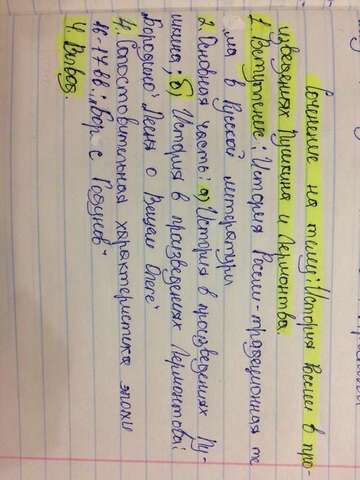 Сочинение на тему: История России в про-
изведениях Пушкина и Лермонтва.
1. Вступление: История России - традиционная те
ма в Русской литературы
2. Основная часть: а) История в произведениях Пу-
шкина; б) История в произведениях Лермонтова:
Бородино" Песня о Вещем Олеге"
4. Сопоставительная характеристика эпохи
16-17 вв: „Борис Годунов"
4. Вывод.